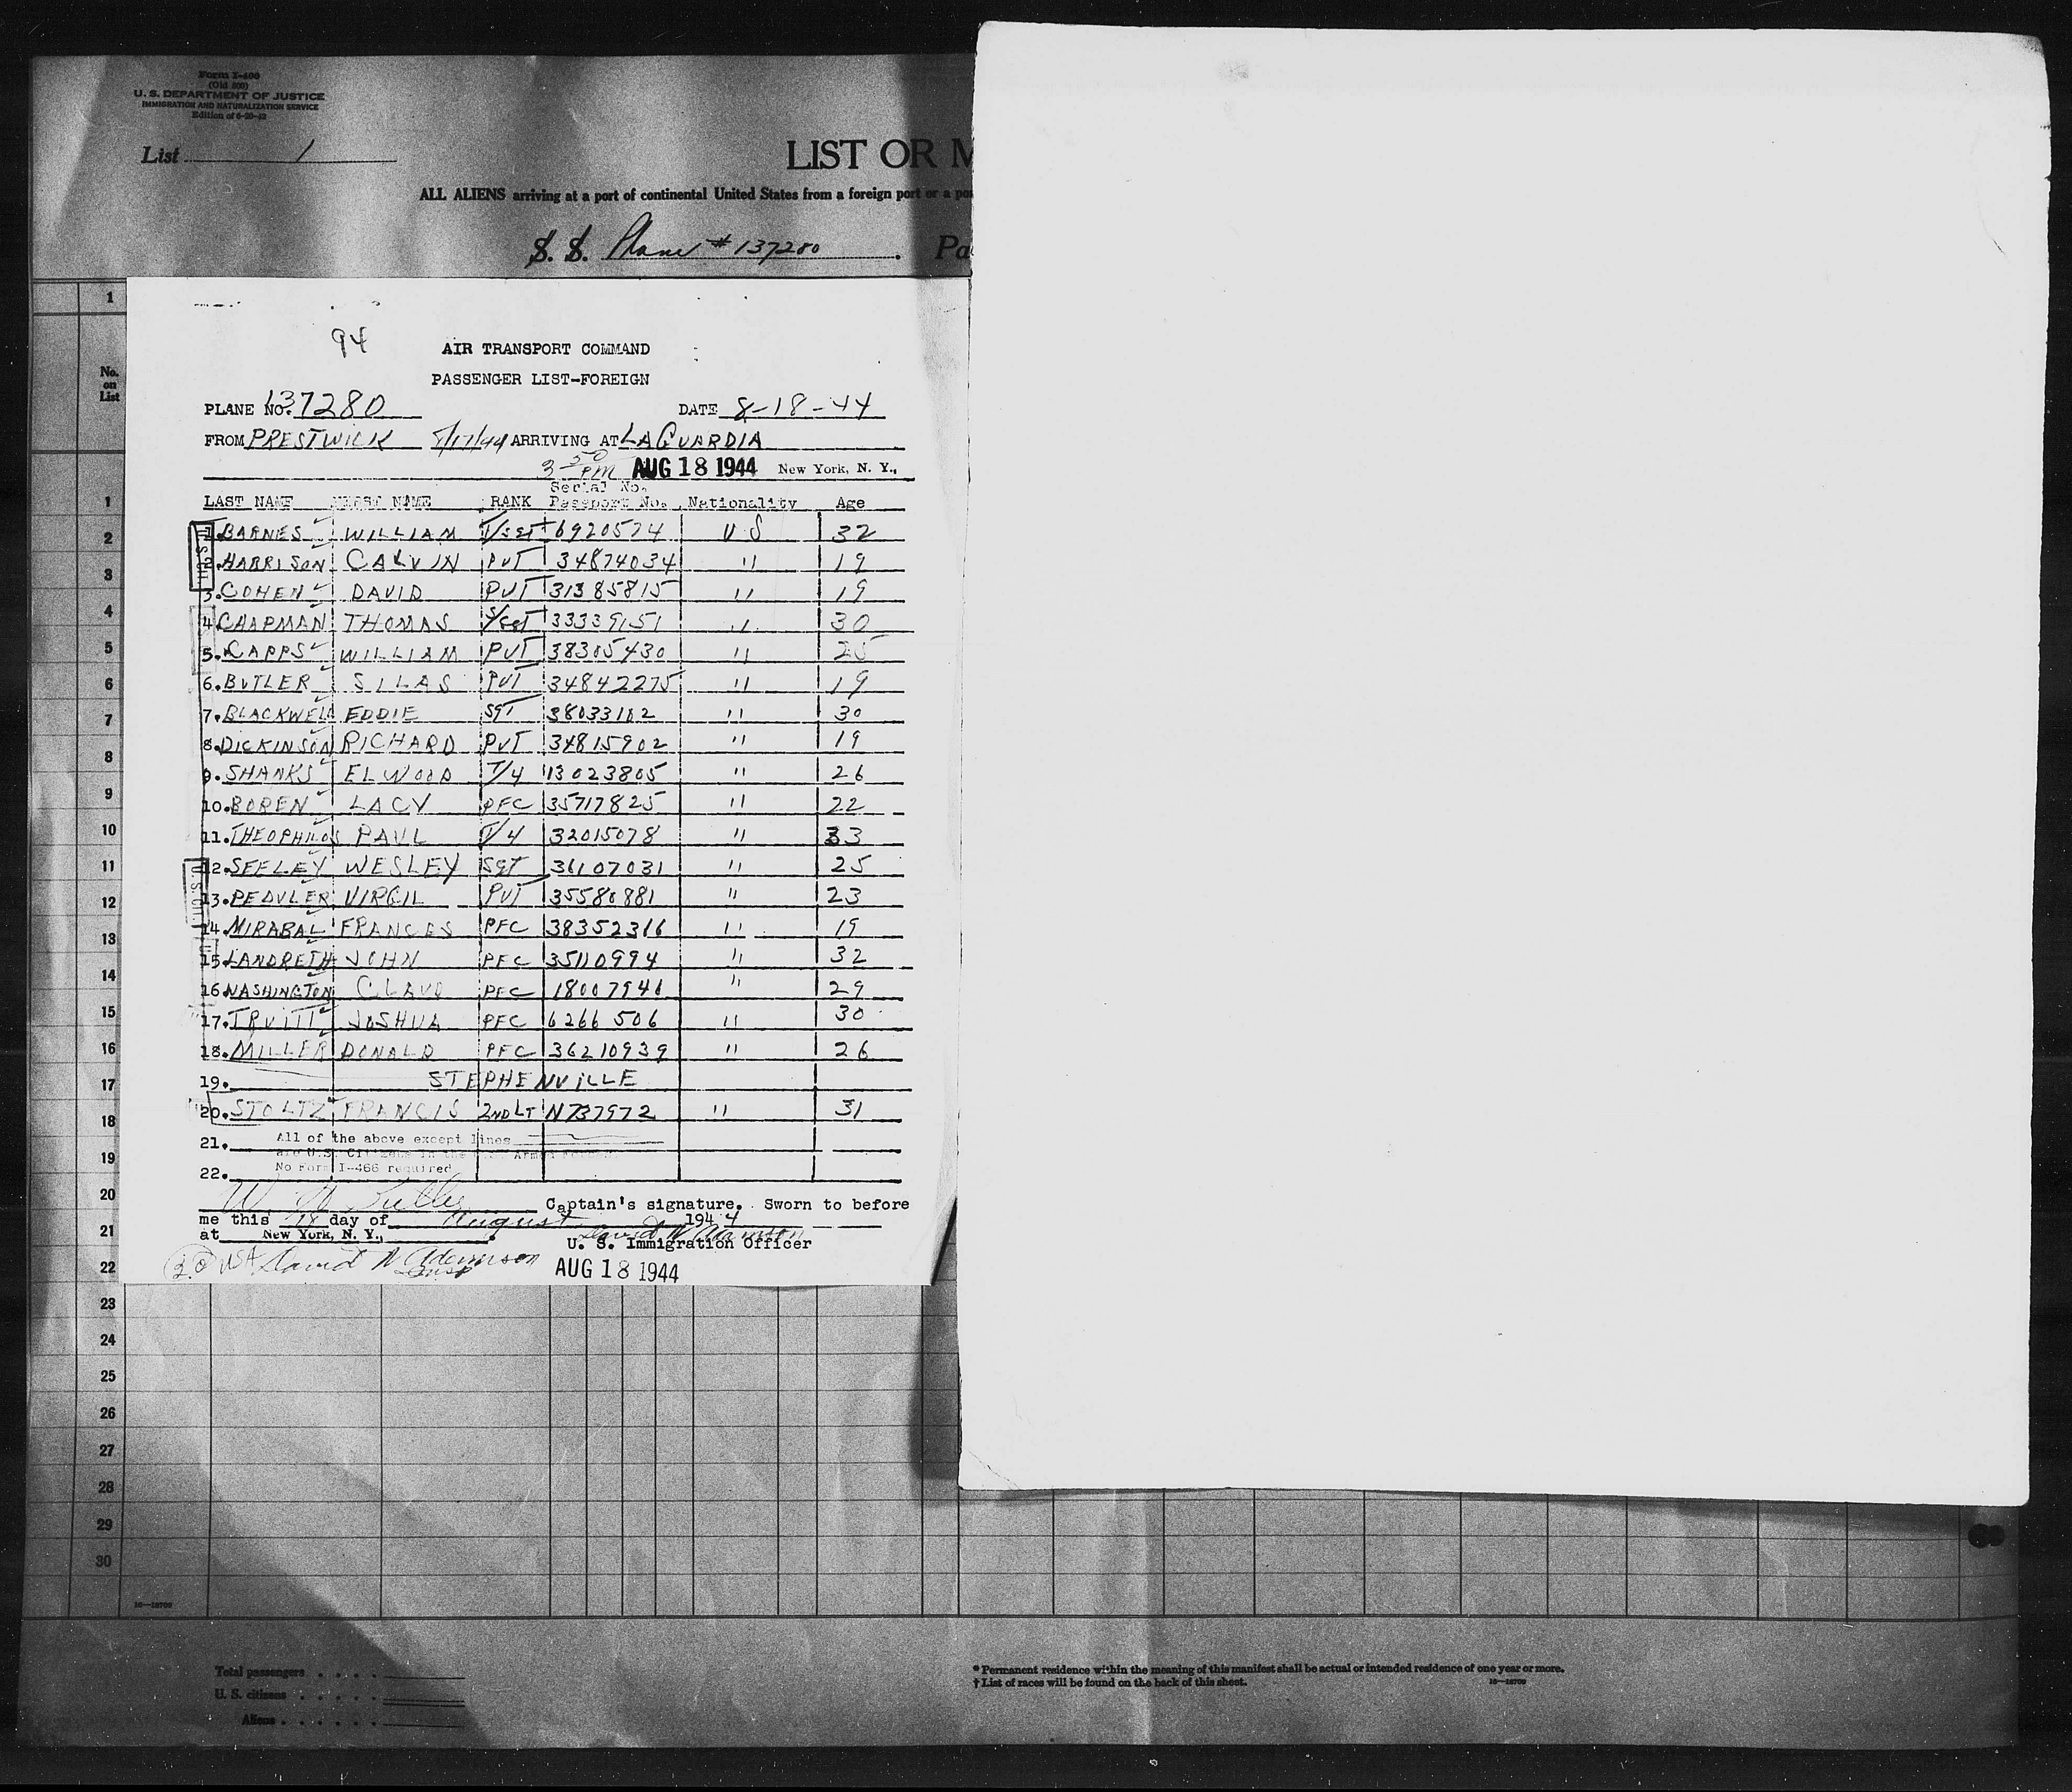 Form I-400
(Old 500)
U. S. DEPARTMENT OF JUSTICE
IMMIGRATION AND NATURALIZATION SERVICE
Edition of 6-20-42
List 1
LIST OR M
ALL ALIENS arriving at a port of continental United States from a foreign port or a po
S. S. Plane # 137280. Pa
94
AIR TRANSPORT COMMAND
PASSENGER LIST-FOREIGN
PLANE NO. 137280 DATE 8-18-44
FROM PRESTWICK 8/17/44 ARRIVING AT LA GUARDIA
3 50 PM AUG 18 1944 New York, N. Y.,
Serial No.
LAST NAME FIRST NAME RANK Passport No. Nationality Age
1. BARNES WILLIAM T/SGT 6920574 US 32
2. HARRISON CALVIN PVT 34874034 " 19
3. COHEN DAVID PVT 31385815 " 19
4. CHAPMAN THOMAS S/SGT 33339151 " 30
5. CAPPS WILLIAM PVT 38305430 " 25
6. BUTLER SILAS PVT 34842275 " 19
7. BLACKWELL EDDIE SGT 38033102 " 30
8. DICKINSON RICHARD PVT 34815902 " 19
9. SHANKS ELWOOD T/4 13023805 " 26
10. BOREN LACY PFC 35717825 " 22
11. THEOPHILOS PAUL T/4 32015078 " 33
12. SEELEY WESLEY SGT 36107031 " 25
13. PEDULER VIRGIL PVT 35580881 " 23
14. MIRABAL FRANCES PFC 38352316 " 19
15. LANDRETH JOHN PFC 35110994 " 32
16. WASHINGTON CLAVO PFC 18007941 " 29
17. TRUITT JOSHUA PFC 6266506 " 30
18. MILLER DONALD PFC 36210939 " 26
19. STEPHENVILLE
20. STOLTZ FRANCIS 2ND LT N737972 " 31
21. All of the above except lines
are U.S. Citizens in the Armed
22. No Form I-466 required
Captain's signature. Sworn to before
me this 18 day of August 1944
at New York, N. Y.,
David N Adamson
U. S. Immigration Officer
20 USA David N Adamson
Insp
AUG 18 1944
No.
on
List
1
1
2
3
4
5
6
7
8
9
10
11
12
13
14
15
16
17
18
19
20
21
22
23
24
25
26
27
28
29
30
16—18700
Total passengers
U. S. citizens
Aliens
* Permanent residence within the meaning of this manifest shall be actual or intended residence of one year or more.
† List of races will be found on the back of this sheet.
16—18700